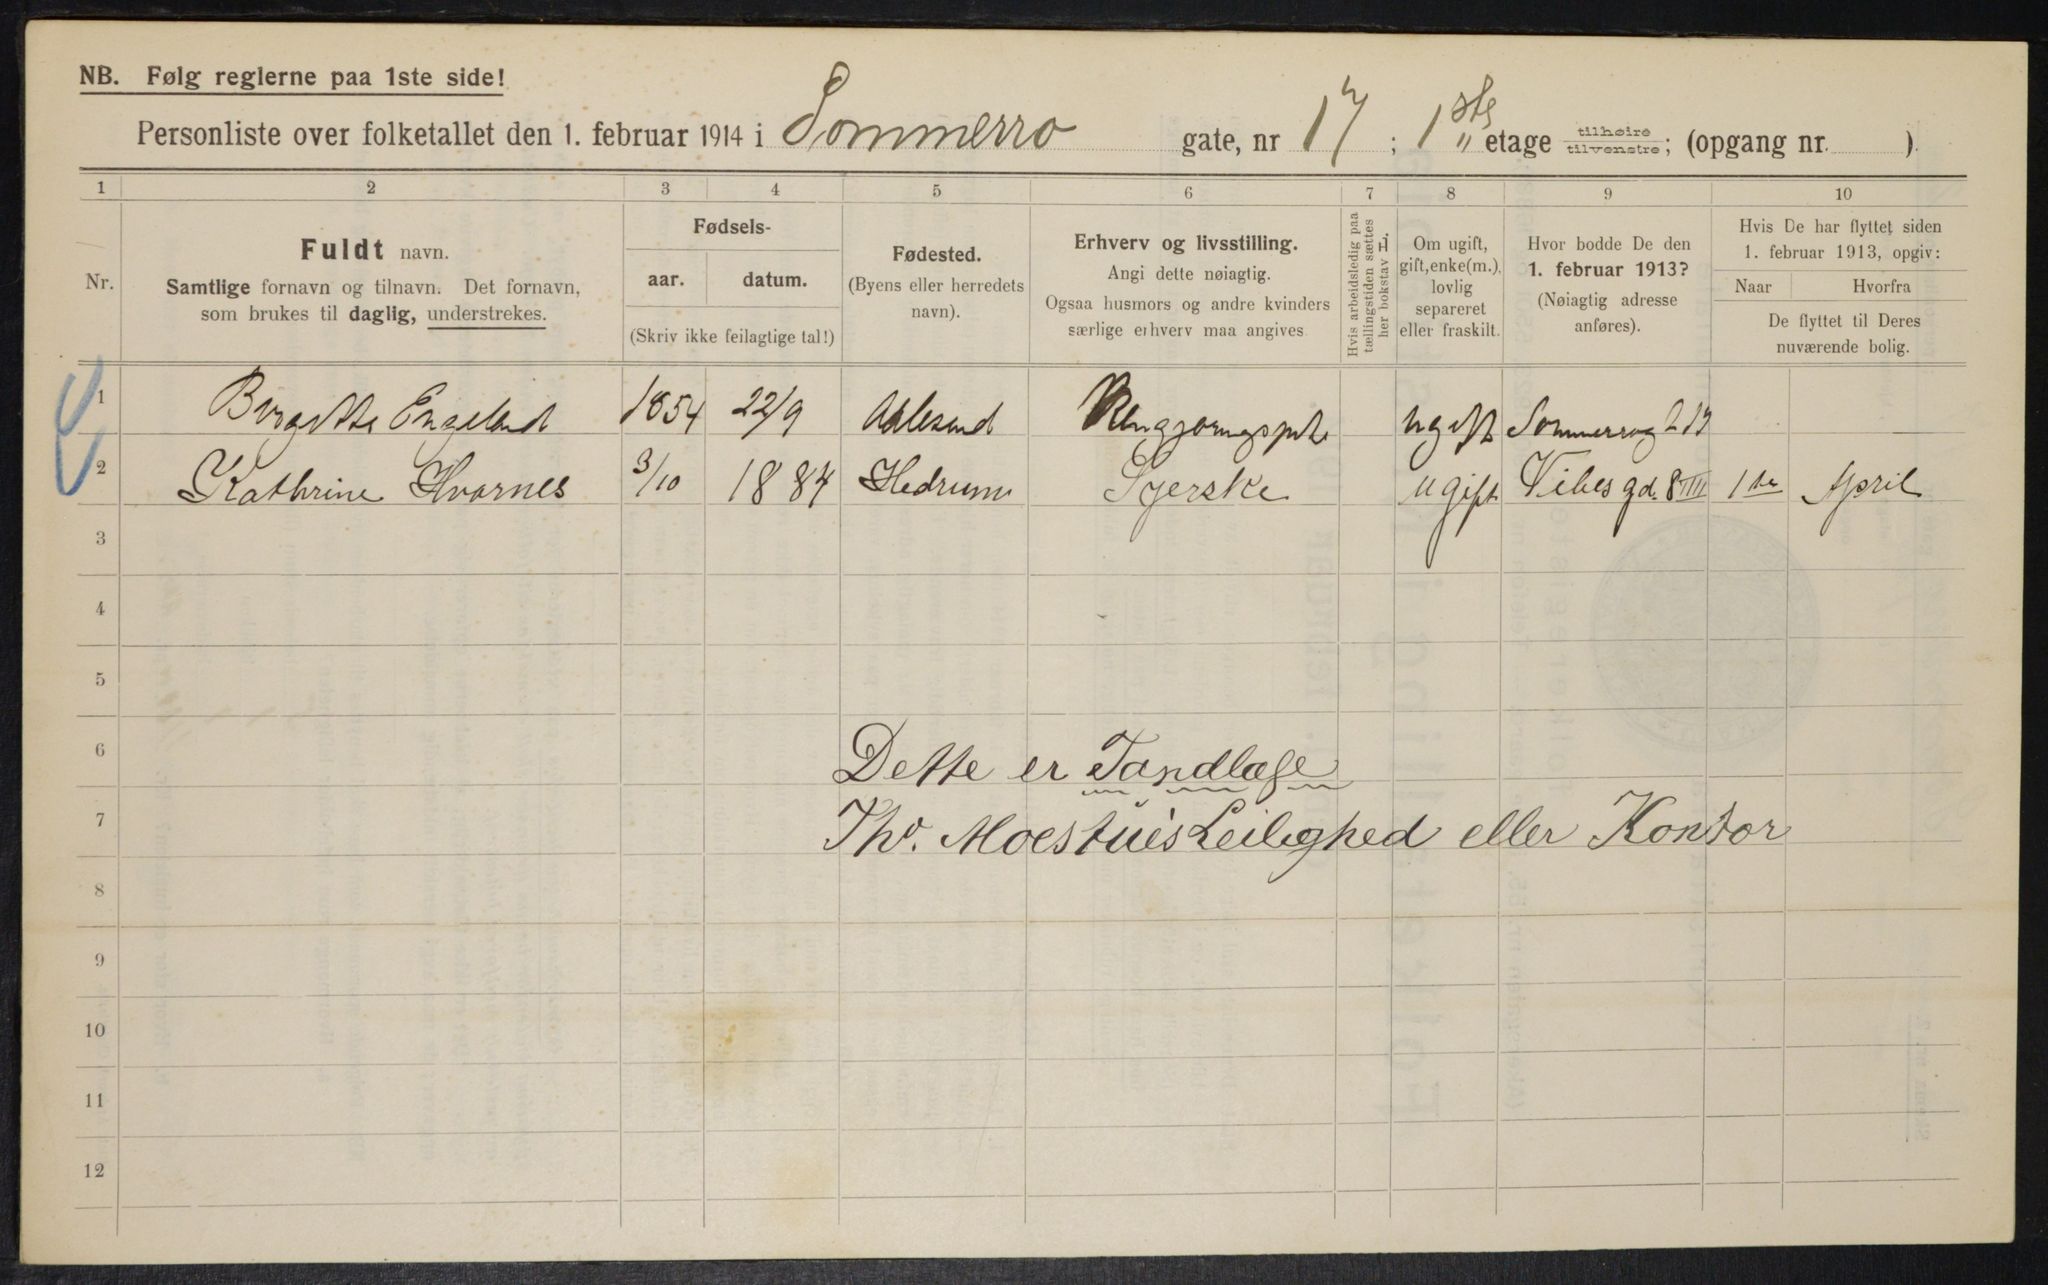 NB. Følg reglerne paa 1ste side!
Personliste over folketallet den 1. februar 1914 i Sommerro gate, nr 17 ; 1ste etage tilhøire tilvenstre; (opgang nr. )
1 2 3 4 5 6 7 8 9 10
Nr.
Fuldt navn.
Samtlige fornavn og tilnavn. Det fornavn,
som brukes til daglig, understrekes.
Fødsels-
aar. datum.
(Skriv ikke feilagtige tal!)
Fødested.
(Byens eller herredets
navn).
Erhverv og livsstilling.
Angi dette nøiagtig.
Ogsaa husmors og andre kvinders
særlige erhverv maa angives
Hvis arbeidsledig paa
tællingstiden sættes
her bokstav L.
Om ugift,
gift, enke(m.),
lovlig
separeret
eller fraskilt.
Hvor bodde De den
1. februar 1913?
(Nøiagtig adresse
anføres).
Hvis De har flyttet siden
1. februar 1913, opgiv:
Naar Hvorfra
De flyttet til Deres
nuværende bolig.
1 Birgitte Engelund 1854 22/9 Aalesund ugift Sommerrog 17
2 Kathrine Hvarnes 3/10 1884 Hedrum Syerske ugift Vibes gd. 8 III 1ste April
3
4
5
6 Dette er Tandlæge
7 Thv. Moestue's Leilighed eller Kontor
8
9
10
11
12